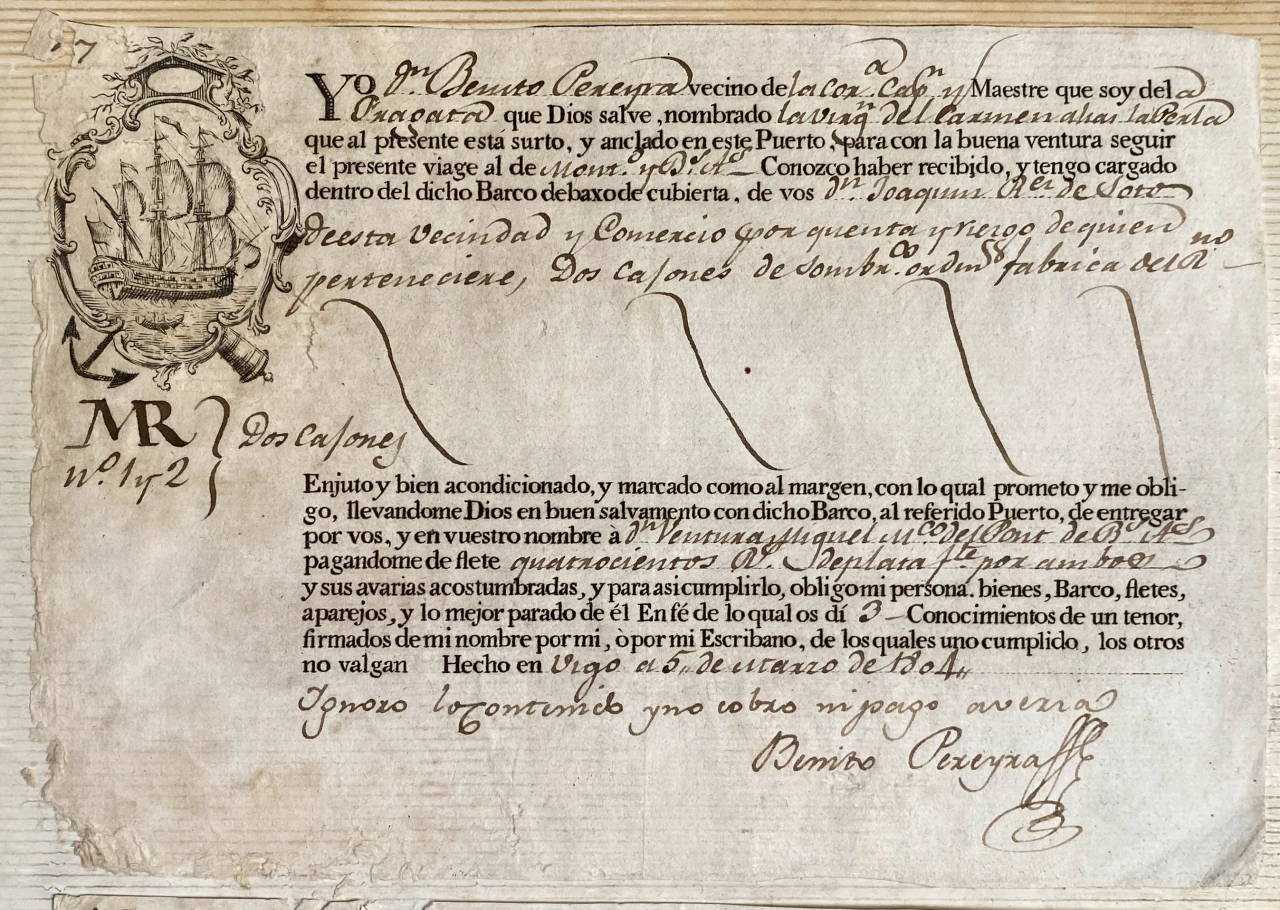 17
Yo Dn. Benito Pereyra vecino de la Cora. Capn. y Maestre que soy del a
Fragata que Dios salve, nombrado la Virgn. del Carmen alias la Perla
que al presente está surto, y anclado en este Puerto, para con la buena ventura seguir
el presente viage al de Monto. y Bs. As. Conozco haber recibido, y tengo cargado
dentro del dicho Barco debaxo de cubierta, de vos Dn. Joaquin Rer. de Soto
de esta vecindad y Comercio por quenta y riezgo de quien
perteneciere, Dos Cajones de Sombros. ordins. fabrica del Rno.
MR Dos Cajones
no. 1 y 2
Enjuto y bien acondicionado, y marcado como al margen, con lo qual prometo y me obli-
go, llevandome Dios en buen salvamento con dicho Barco, al referido Puerto, de entregar
por vos, y en vuestro nombre à Dn. Ventura Miquel Mco. del Pont de Bs. As.
pagandome de flete quatrocientos Rs. de plata fte. por ambos
y sus avarias acostumbradas, y para asi cumplirlo, obligo mi persona. bienes, Barco, fletes,
aparejos, y lo mejor parado de él En fé de lo qual os dí 3 Conocimientos de un tenor,
firmados de mi nombre por mi, ò por mi Escribano, de los quales uno cumplido, los otros
no valgan Hecho en Vigo a 5,, de Marzo de 1804,,
Ignoro lo Contenido y no cobro ni pago averia
Benito Pereyra